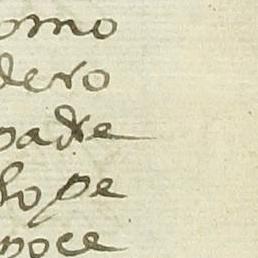 omo
dero
padre
ho pe
noce